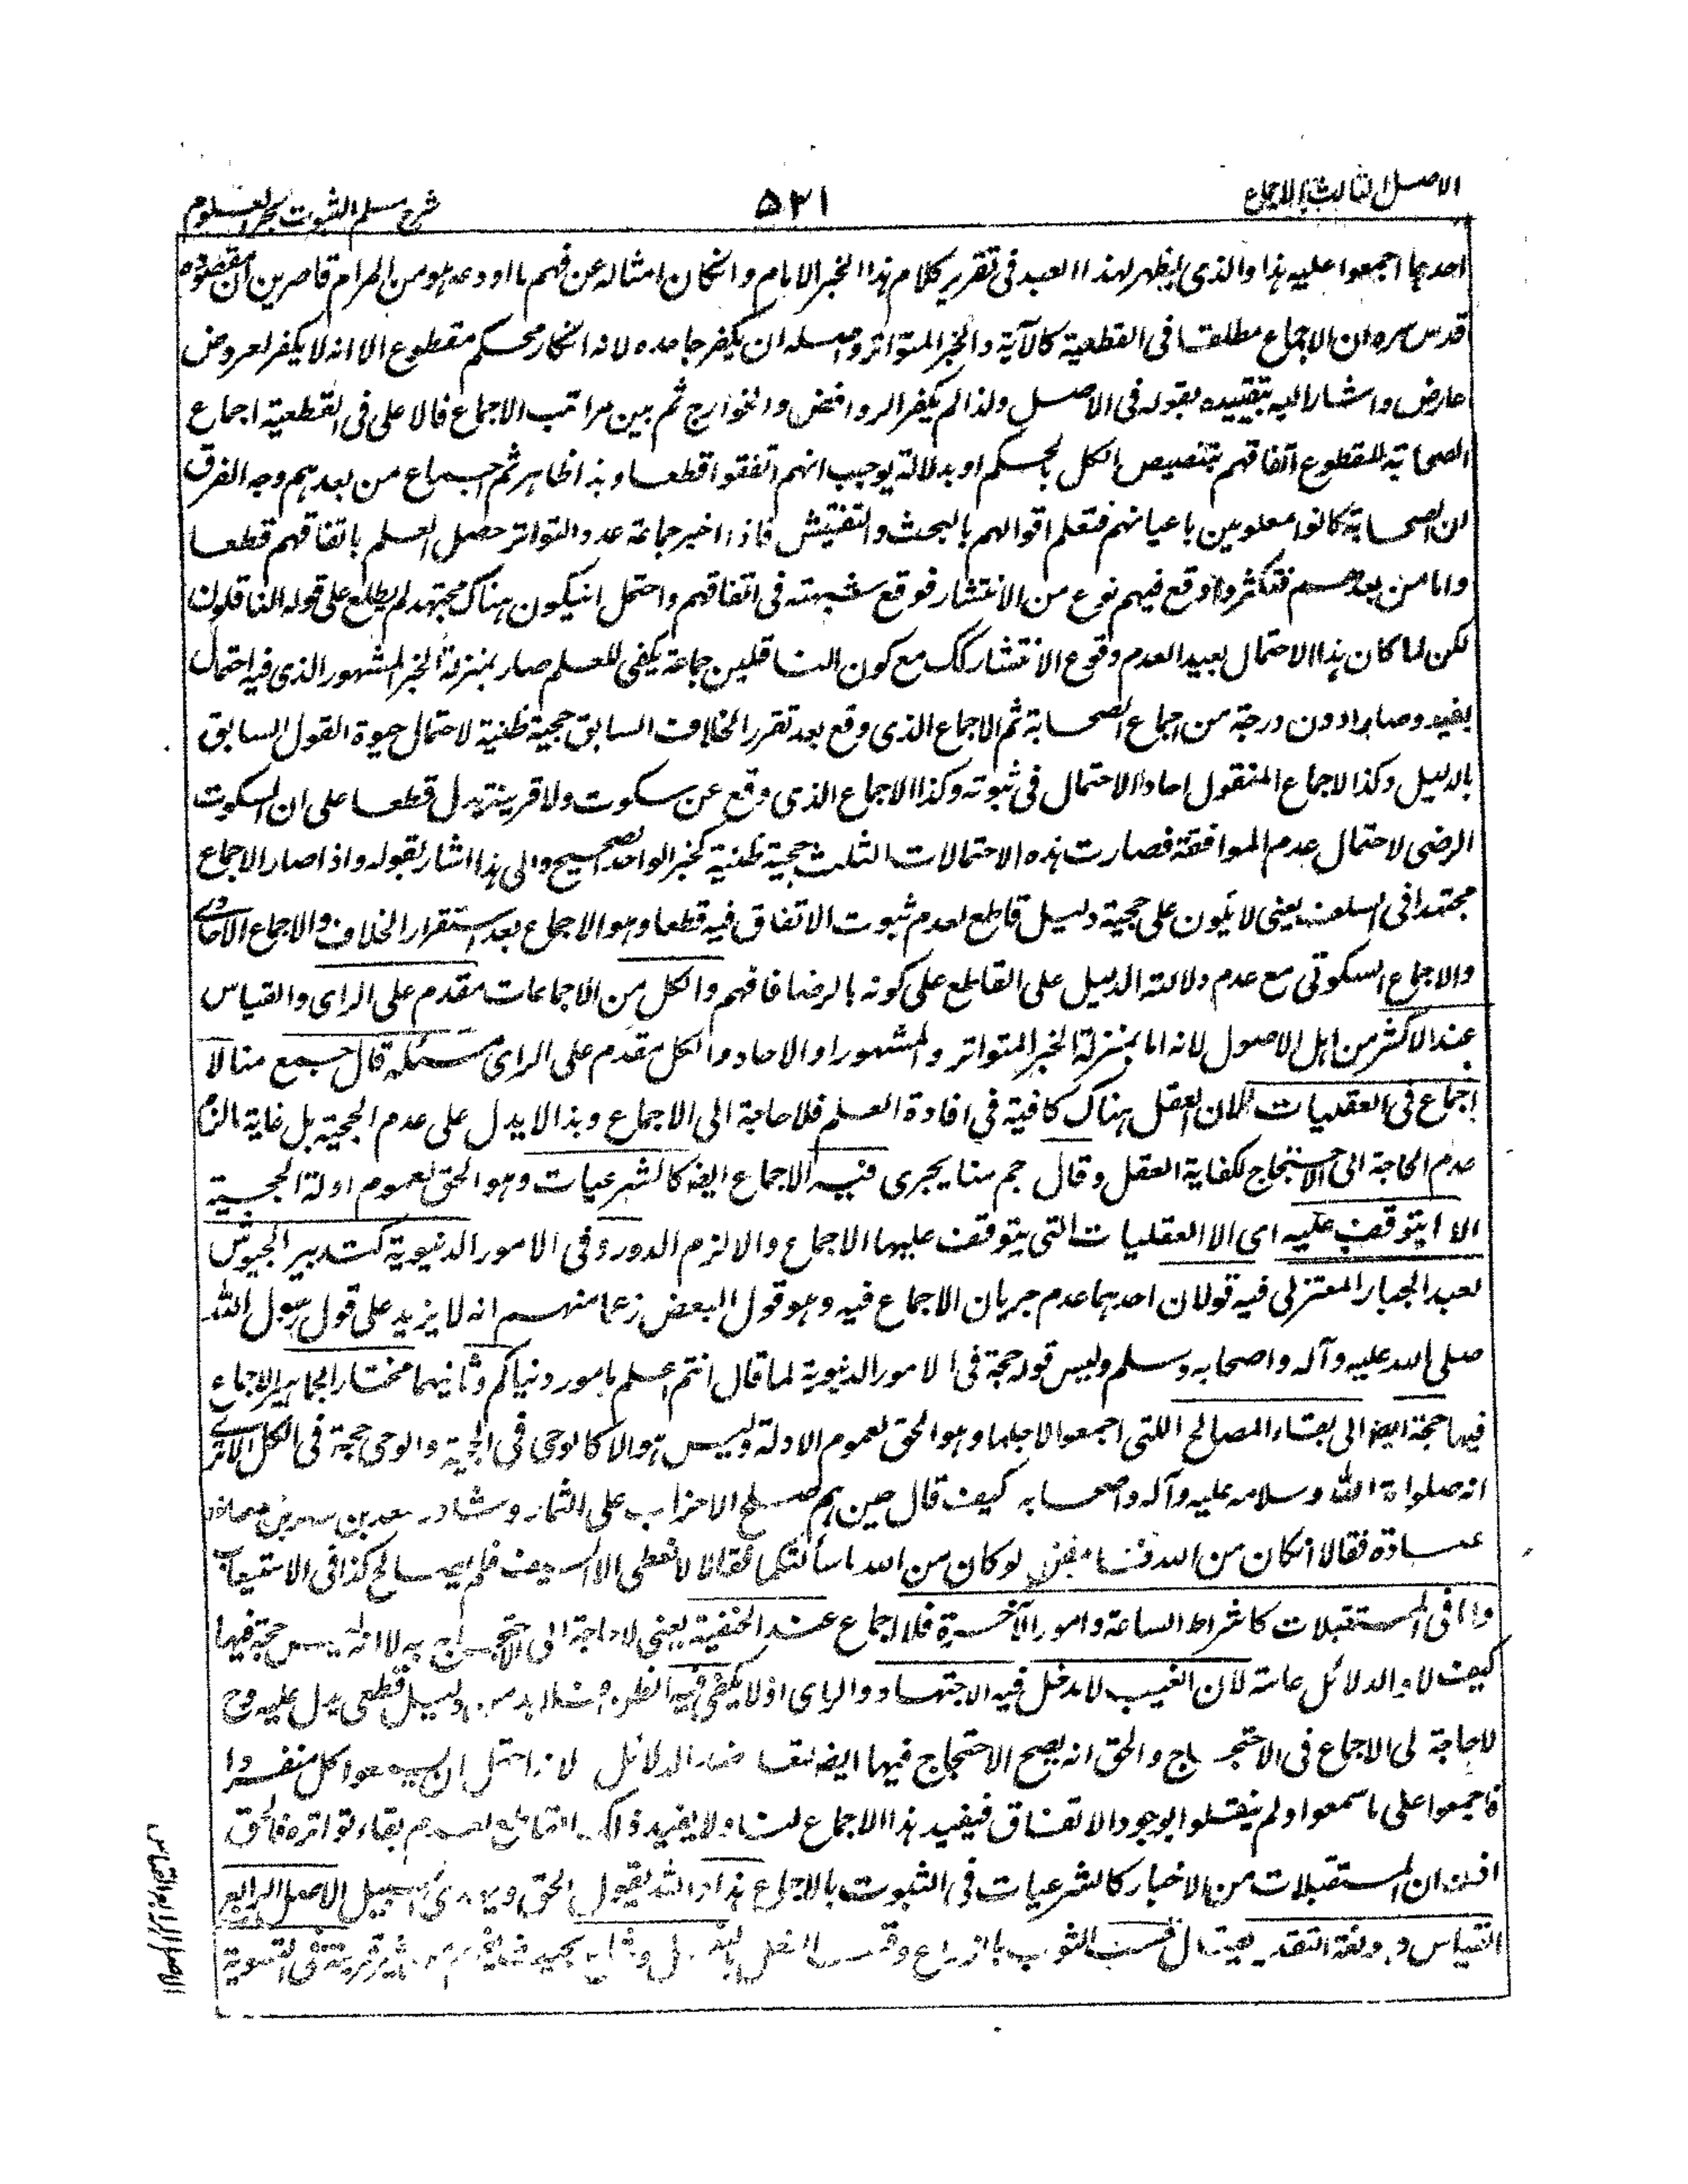 الاصل الثالث الاجماع
۵۲۱
شرح مسلم الثبوت لبحر العلوم
احدها اجمعوا عليه هذا والذى يظهر لهذا العبد فى تقرير كلام هذا الحبر الامام وانكان امثاله عن فهم ما اودعه هو من المرام قاصرين ان مقصوده
قدس سره ان الاجماع مطلقا فى القطعية كالآية والخبر المتواتر واصله ان يكفر جاحده لانه انكار محكم مقطوع الا انه لا يكفر لعروض
عارض واشار اليه بتقييده بقوله فى الاصل ولذا لم يكفر الروافض والخوارج ثم بين مراتب الاجماع فالاعلى فى القطعية اجماع
الصحابة المقطوع اتفاقهم بتنصيص الكل بالحكم او بدلالة يوجب انهم اتفقوا قطعا وهذا ظاهر ثم اجماع من بعدهم وجه الفرق
ان الصحابة كانوا معلومين باعيانهم فتعلم اقوالهم بالبحث والتفتيش فاذا اخبر جماعة عدد التواتر حصل العلم باتفاقهم قطعا
واما من بعدهم فتكثروا ووقع فيهم نوع من الانتشار فوقع شبهته فى اتفاقهم واحتمل انيكون هناك مجتهد لم يطلع على قوله الناقلون
لكن لما كان هذا الاحتمال بعيدا لعدم وقوع الانتشار كك مع كون الناقلين جماعة يكفى للعلم صار بمنزلة الخبر المشهور الذى فيه احتمال
بعيد وصار ادون درجة من اجماع الصحابة ثم الاجماع الذى وقع بعد تقرر الخلاف السابق حجية ظنية لاحتمال حيوة القول السابق
بالدليل وكذا الاجماع المنقول احادا لاحتمال فى ثبوته وكذا الاجماع الذى وقع عن سكوت ولا قرينة يدل قطعا على ان السكوت
الرضى لاحتمال عدم الموافقة فصارت هذه الاحتمالات الثلث حجية ظنية كخبر الواحد الصحيح والى هذا اشار بقوله واذا صار الاجماع
مجتهدا فى السلف يعنى لا يكون على حجية دليل قاطع لعدم ثبوت الاتفاق فيه قطعا وهو الاجماع بعد استقرار الخلاف والاجماع الاحادى
والاجماع السكوتى مع عدم دلالته الدليل على القاطع على كونه بالرضا فافهم والكل من الاجماعات مقدم على الراى والقياس
عند الاكثر من اهل الاصول لانه اما بمنزلة الخبر المتواتر والمشهور او الاحاد والكل مقدم على الراى مسئلة قال جمع منا لا
اجماع فى العقليات لان العقل هناك كافية فى افادة العلم فلا حاجة الى الاجماع وهذا لا يدل على عدم الحجية بل غاية الزم
عدم الحاجة الى الاحتجاج لكفاية العقل وقال جم منا يجرى فيه الاجماع ايضا كالشرعيات وهو الحق لعموم ادلة الحجية
الا ما يتوقف عليه اى الا العقليات التى يتوقف عليها الاجماع والا لزم الدور وفى الامور الدنيوية كتدبير الجيوش
لعبد الجبار المعتزلى فيه قولان احدهما عدم جريان الاجماع فيه وهو قول البعض زعما منهم انه لا يزيد على قول رسول الله
صلى الله عليه وآله واصحابه وسلم وليس قوله حجة فى الامور الدنيوية لما قال انتم اعلم بامور دنياكم وثانيهما مختار الجماهير الاجماع
فيها حجة ايضا الى بقاء المصالح اللتى اجمعوا لاجلها وهو الحق لعموم الادلة وليس هو الا كالوحى فى الحجية والوحى حجة فى الكل الا ترى
انه صلوات الله وسلامه عليه وآله واصحابه كيف قال حين هم صلح الاحزاب على الثمار وشاور سعد بن معاذ
عبادة فقالا انكان من الله فقال لو كان من الله ما سألتكما فقالا لا نعطى الا السيف فلم يصالح كذا فى الاستيعاب
واما فى المستقبلات كاشراط الساعة وامور الآخرة فلا اجماع عند الحنفية يعنى لا حاجة الى الاحتجاج به لا انه ليس حجة فيها
كيف لا والدلائل عامة لان الغيب لا مدخل فيه الاجتهاد والراى اذ لا يكفى فيه الظن فلا بد من دليل قطعى يدل عليه وح
لا حاجة الى الاجماع فى الاحتجاج والحق انه يصح الاحتجاج فيها ايضا الدلائل لانه احتمل ان سمعوا كل منفردا
فاجمعوا على ما سمعوا ولم ينقلوا لوجود الاتفاق فيفيد هذا الاجماع لنا ولا يفيد ذاك القاطع لعدم بقاء تواتره فالحق
ان المستقبلات من الاخبار كالشرعيات فى الثبوت بالاجماع هذا والله يقول الحق ويهدى السبيل الاصل الرابع
القياس وهو لغة التقدير يقال قست الثوب بالذراع وقست النعل بالنعل فى التسوية